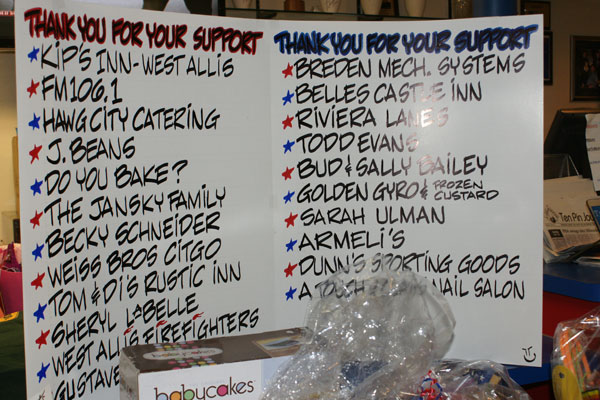 THANK YOU FOR YOUR SUPPORT
KIP'S INN-WEST ALLIS
FM 106.1
HAWG CITY CATERING
J. BEANS
DO YOU BAKE?
THE JANSKY FAMILY
BECKY SCHNEIDER
WEISS BROS CITGO
TOM & DI'S RUSTIC INN
SHERYL LABELLE
WEST ALLIS FIREFIGHTERS
GUSTAVE
THANK YOU FOR YOUR SUPPORT
BREDEN MECH. SYSTEMS
BELLES CASTLE INN
RIVIERA LANES
TODD EVANS
BUD & SALLY BAILEY
GOLDEN GYRO & FROZEN CUSTARD
SARAH ULMAN
ARMELI'S
DUNN'S SPORTING GOODS
A TOUCH NAIL SALON
babycakes
Ten Pin Jou